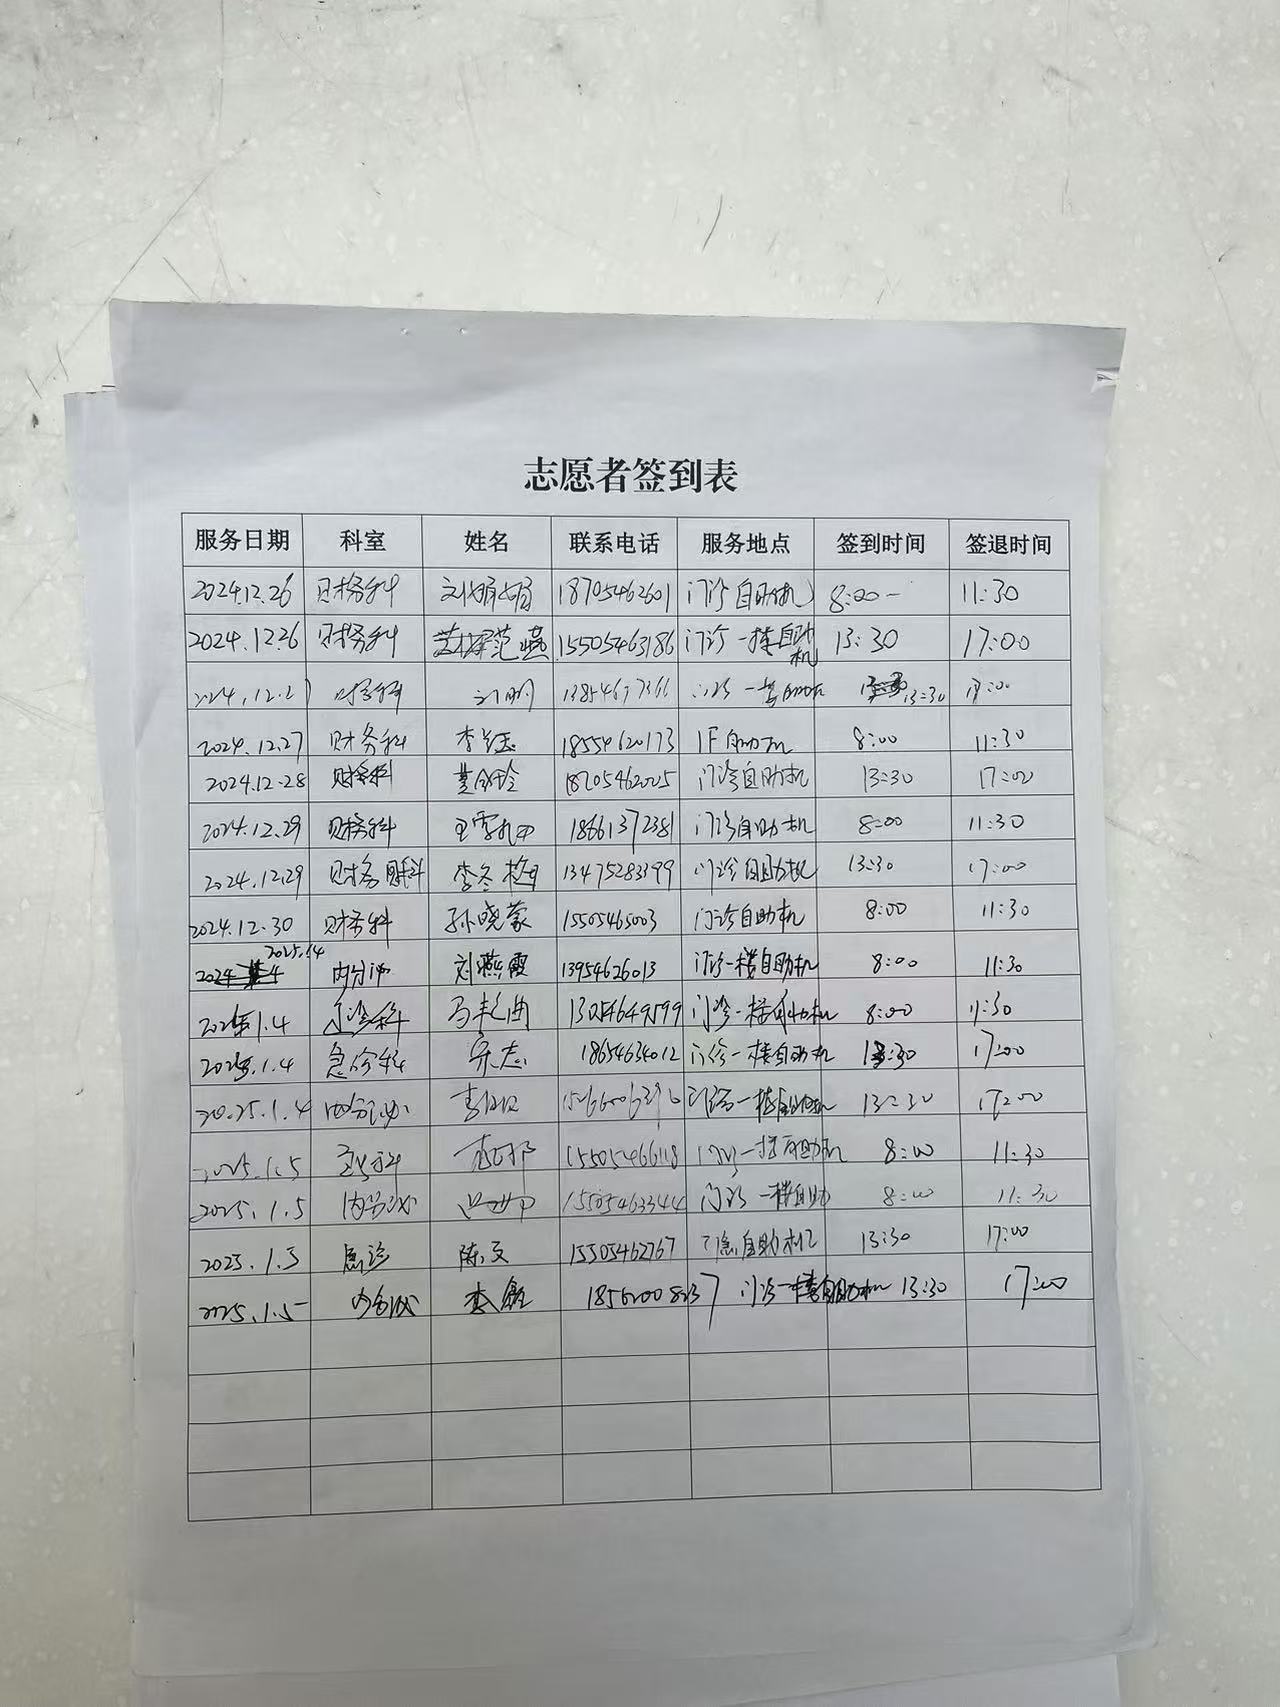 志愿者签到表
服务日期 科室 姓名 联系电话 服务地点 签到时间 签退时间
2024.12.26 财务科 刘娟娟 18705462601 门诊自助机 8:00- 11:30
2024.12.26 财务科 范燕 15505463186 门诊一楼自助机 13:30 17:00
2024.12.27 财务科 刘明 门诊一楼自助机 13:30 17:00
2024.12.27 财务科 18554620173 1F自助机 8:00 11:30
2024.12.28 财务科 18705462025 门诊自助机 13:30 17:00
2024.12.29 财务科 18661372381 门诊自助机 8:00 11:30
2024.12.29 财务科 李冬梅 13475283399 门诊自助机 13:30 17:00
2024.12.30 财务科 孙晓蒙 15505465003 门诊自助机 8:00 11:30
2025.1.4 内分泌 刘燕霞 13954626013 门诊一楼自助机 8:00 11:30
2025.1.4 13054649599 门诊一楼自助机 8:00 11:30
2025.1.4 急诊科 宋志 18654634012 门诊一楼自助机 13:30 17:00
2025.1.4 内分泌 门诊一楼自助机 13:30 17:00
2025.1.5 15505466118 门诊一楼自助机 8:00 11:30
2025.1.5 内分泌 15505463344 门诊一楼自助 8:00 11:30
2025.1.5 急诊 陈文 15505462767 门急自助机 13:30 17:00
2025.1.5 内分泌 门诊一楼自助机 13:30 17:00